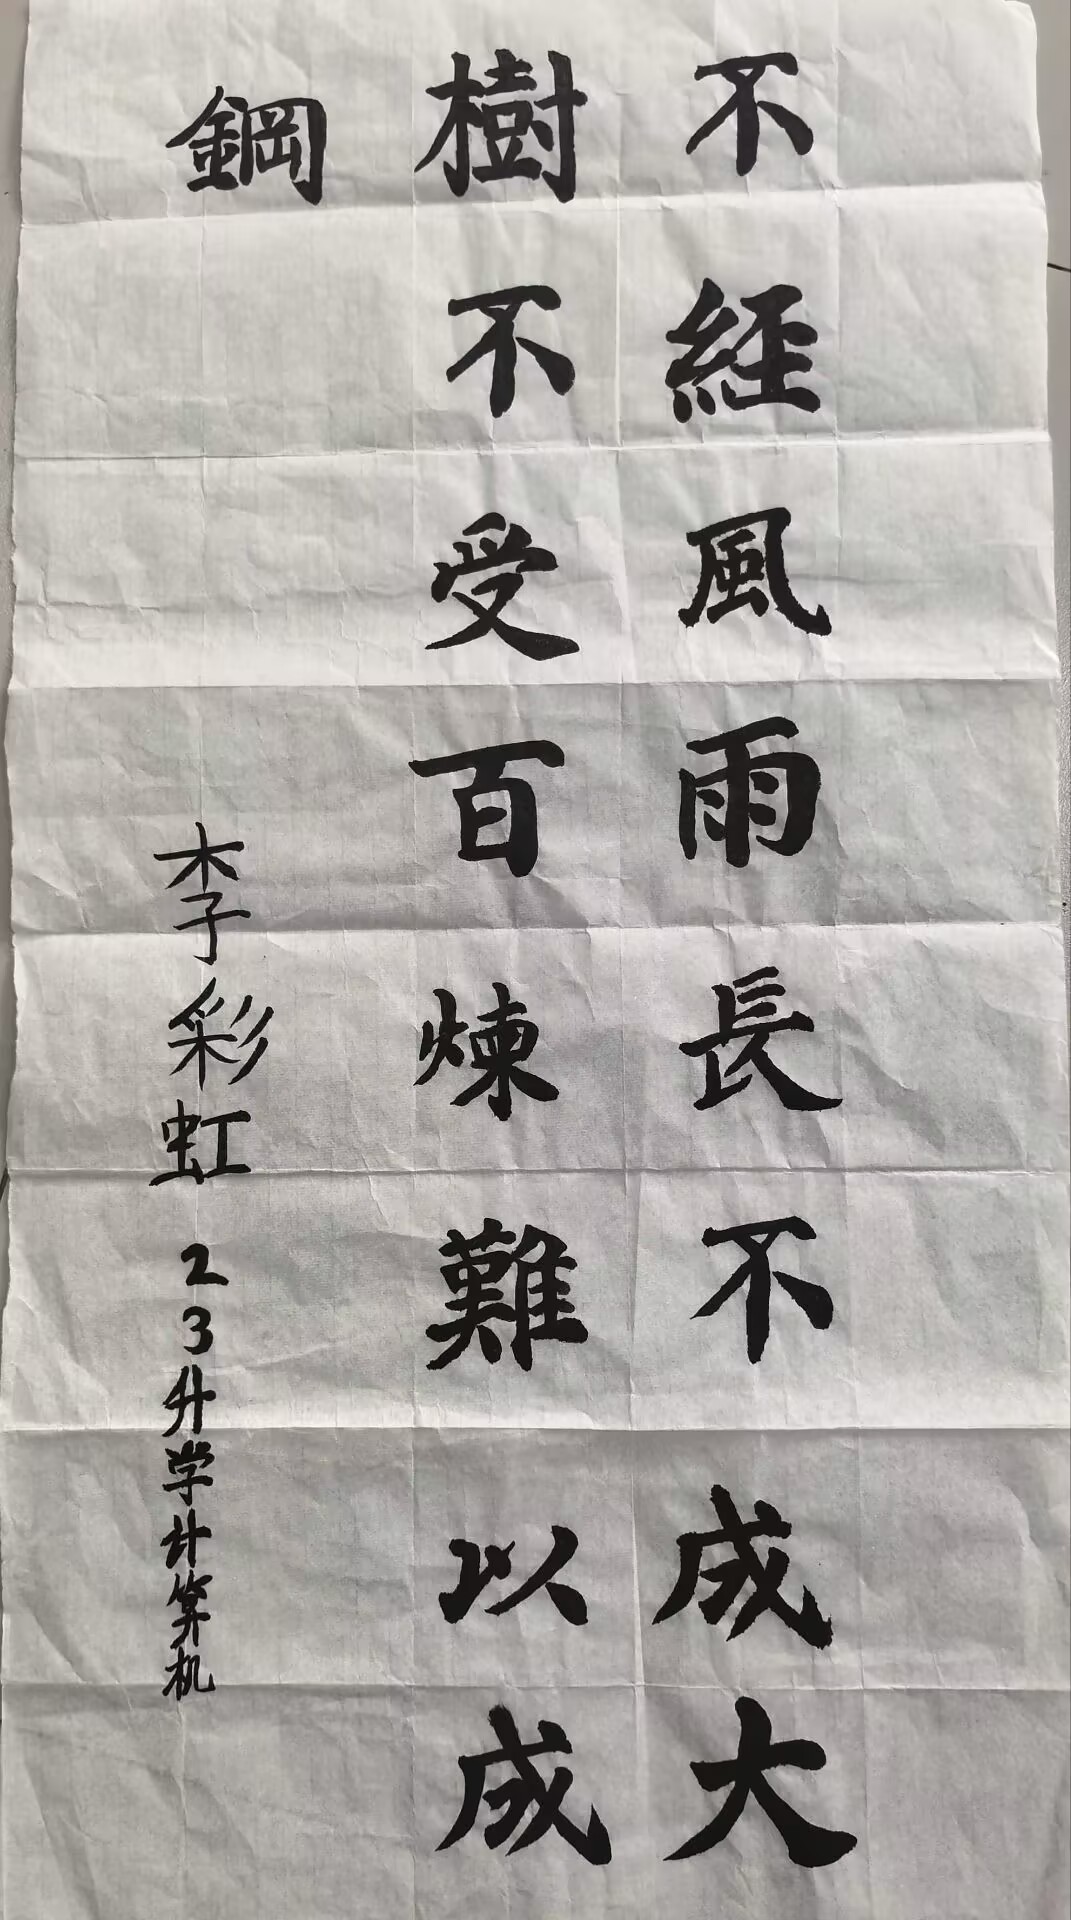 不經風雨長不成大
樹不受百煉難以成
鋼
李彩虹 23升学计算机